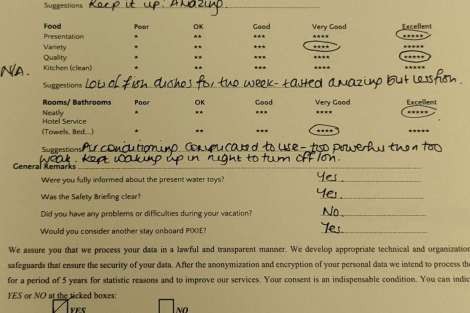 Suggestions Keep it up. Amazing.
Food Poor OK Good Very Good Excellent
Presentation * ** *** **** *****
Variety * ** *** **** *****
Quality * ** *** **** *****
N/A. Kitchen (clean) * ** *** **** *****
Suggestions Lots of fish dishes for the week - tasted amazing but less fish.
Rooms/ Bathrooms Poor OK Good Very Good Excellent
Neatly * ** *** **** *****
Hotel Service
(Towels, Bed...) * ** *** **** *****
Suggestions Air conditioning complicated to use - too powerful then too
weak. Kept waking up in night to turn off/on.
General Remarks
Were you fully informed about the present water toys? Yes.
Was the Safety Briefing clear? Yes.
Did you have any problems or difficulties during your vacation? No
Would you consider another stay onboard PIXIE? Yes.
We assure you that we process your data in a lawful and transparent manner. We develop appropriate technical and organization
safeguards that ensure the security of your data. After the anonymization and encryption of your personal data we intend to process the
for a period of 5 years for statistic reasons and to improve our services. Your consent is an indispensable condition. You can indic
YES or NO at the ticked boxes:
YES NO